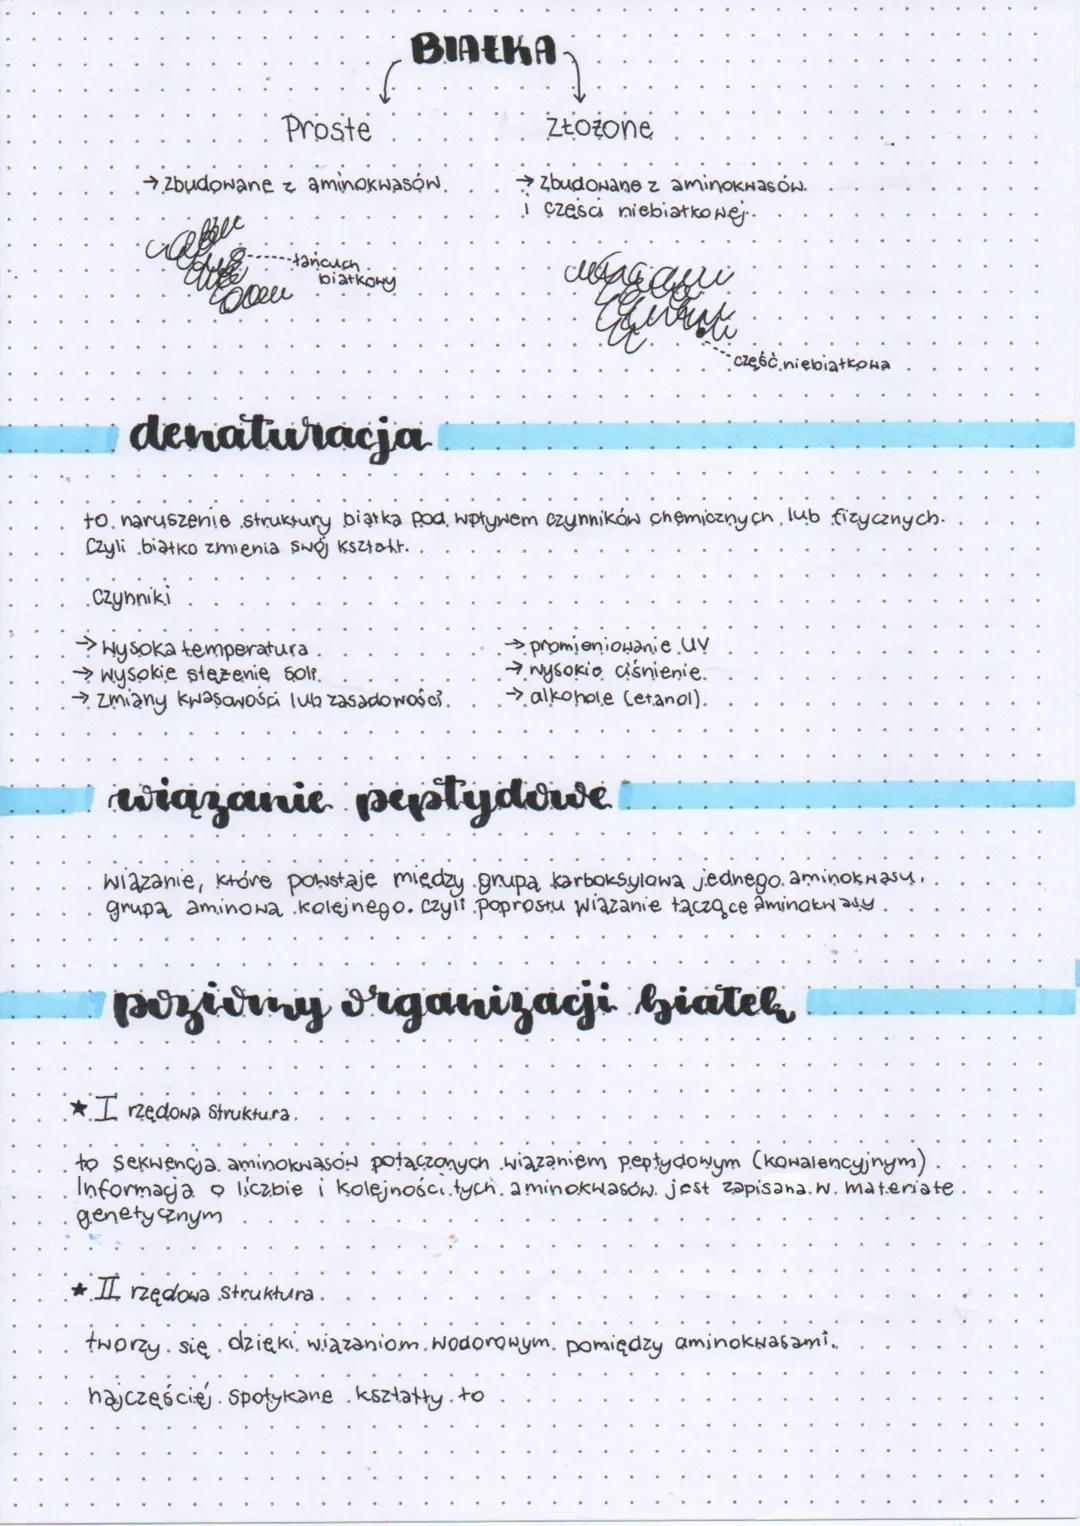 BIAŁKA
Proste
Złożone
→ zbudowane z aminokwasów.
→ zbudowane z aminokwasów.
i części niebiałkowej.
łańcuch
białkowy
część niebiałkowa
denaturacja
to naruszenie struktury białka pod wpływem czynników chemicznych lub fizycznych.
Czyli białko zmienia swój kształt.
Czynniki
→ wysoka temperatura
→ wysokie stężenie soli.
→ zmiany kwasowości lub zasadowości.
→ promieniowanie UV
→ wysokie ciśnienie.
→ alkohole (etanol).
wiązanie peptydowe
wiązanie, które powstaje między grupą karboksylową jednego aminokwasu,
grupą aminową kolejnego. Czyli poprostu wiązanie łączące aminokwasy.
poziomy organizacji białek
★ I rzędowa struktura.
to sekwencja aminokwasów połączonych wiązaniem peptydowym (kowalencyjnym).
Informacja o liczbie i kolejności tych aminokwasów jest zapisana w materiale
genetycznym
★ II rzędowa struktura.
tworzy się dzięki wiązaniom wodorowym pomiędzy aminokwasami.
najczęściej spotykane kształty to